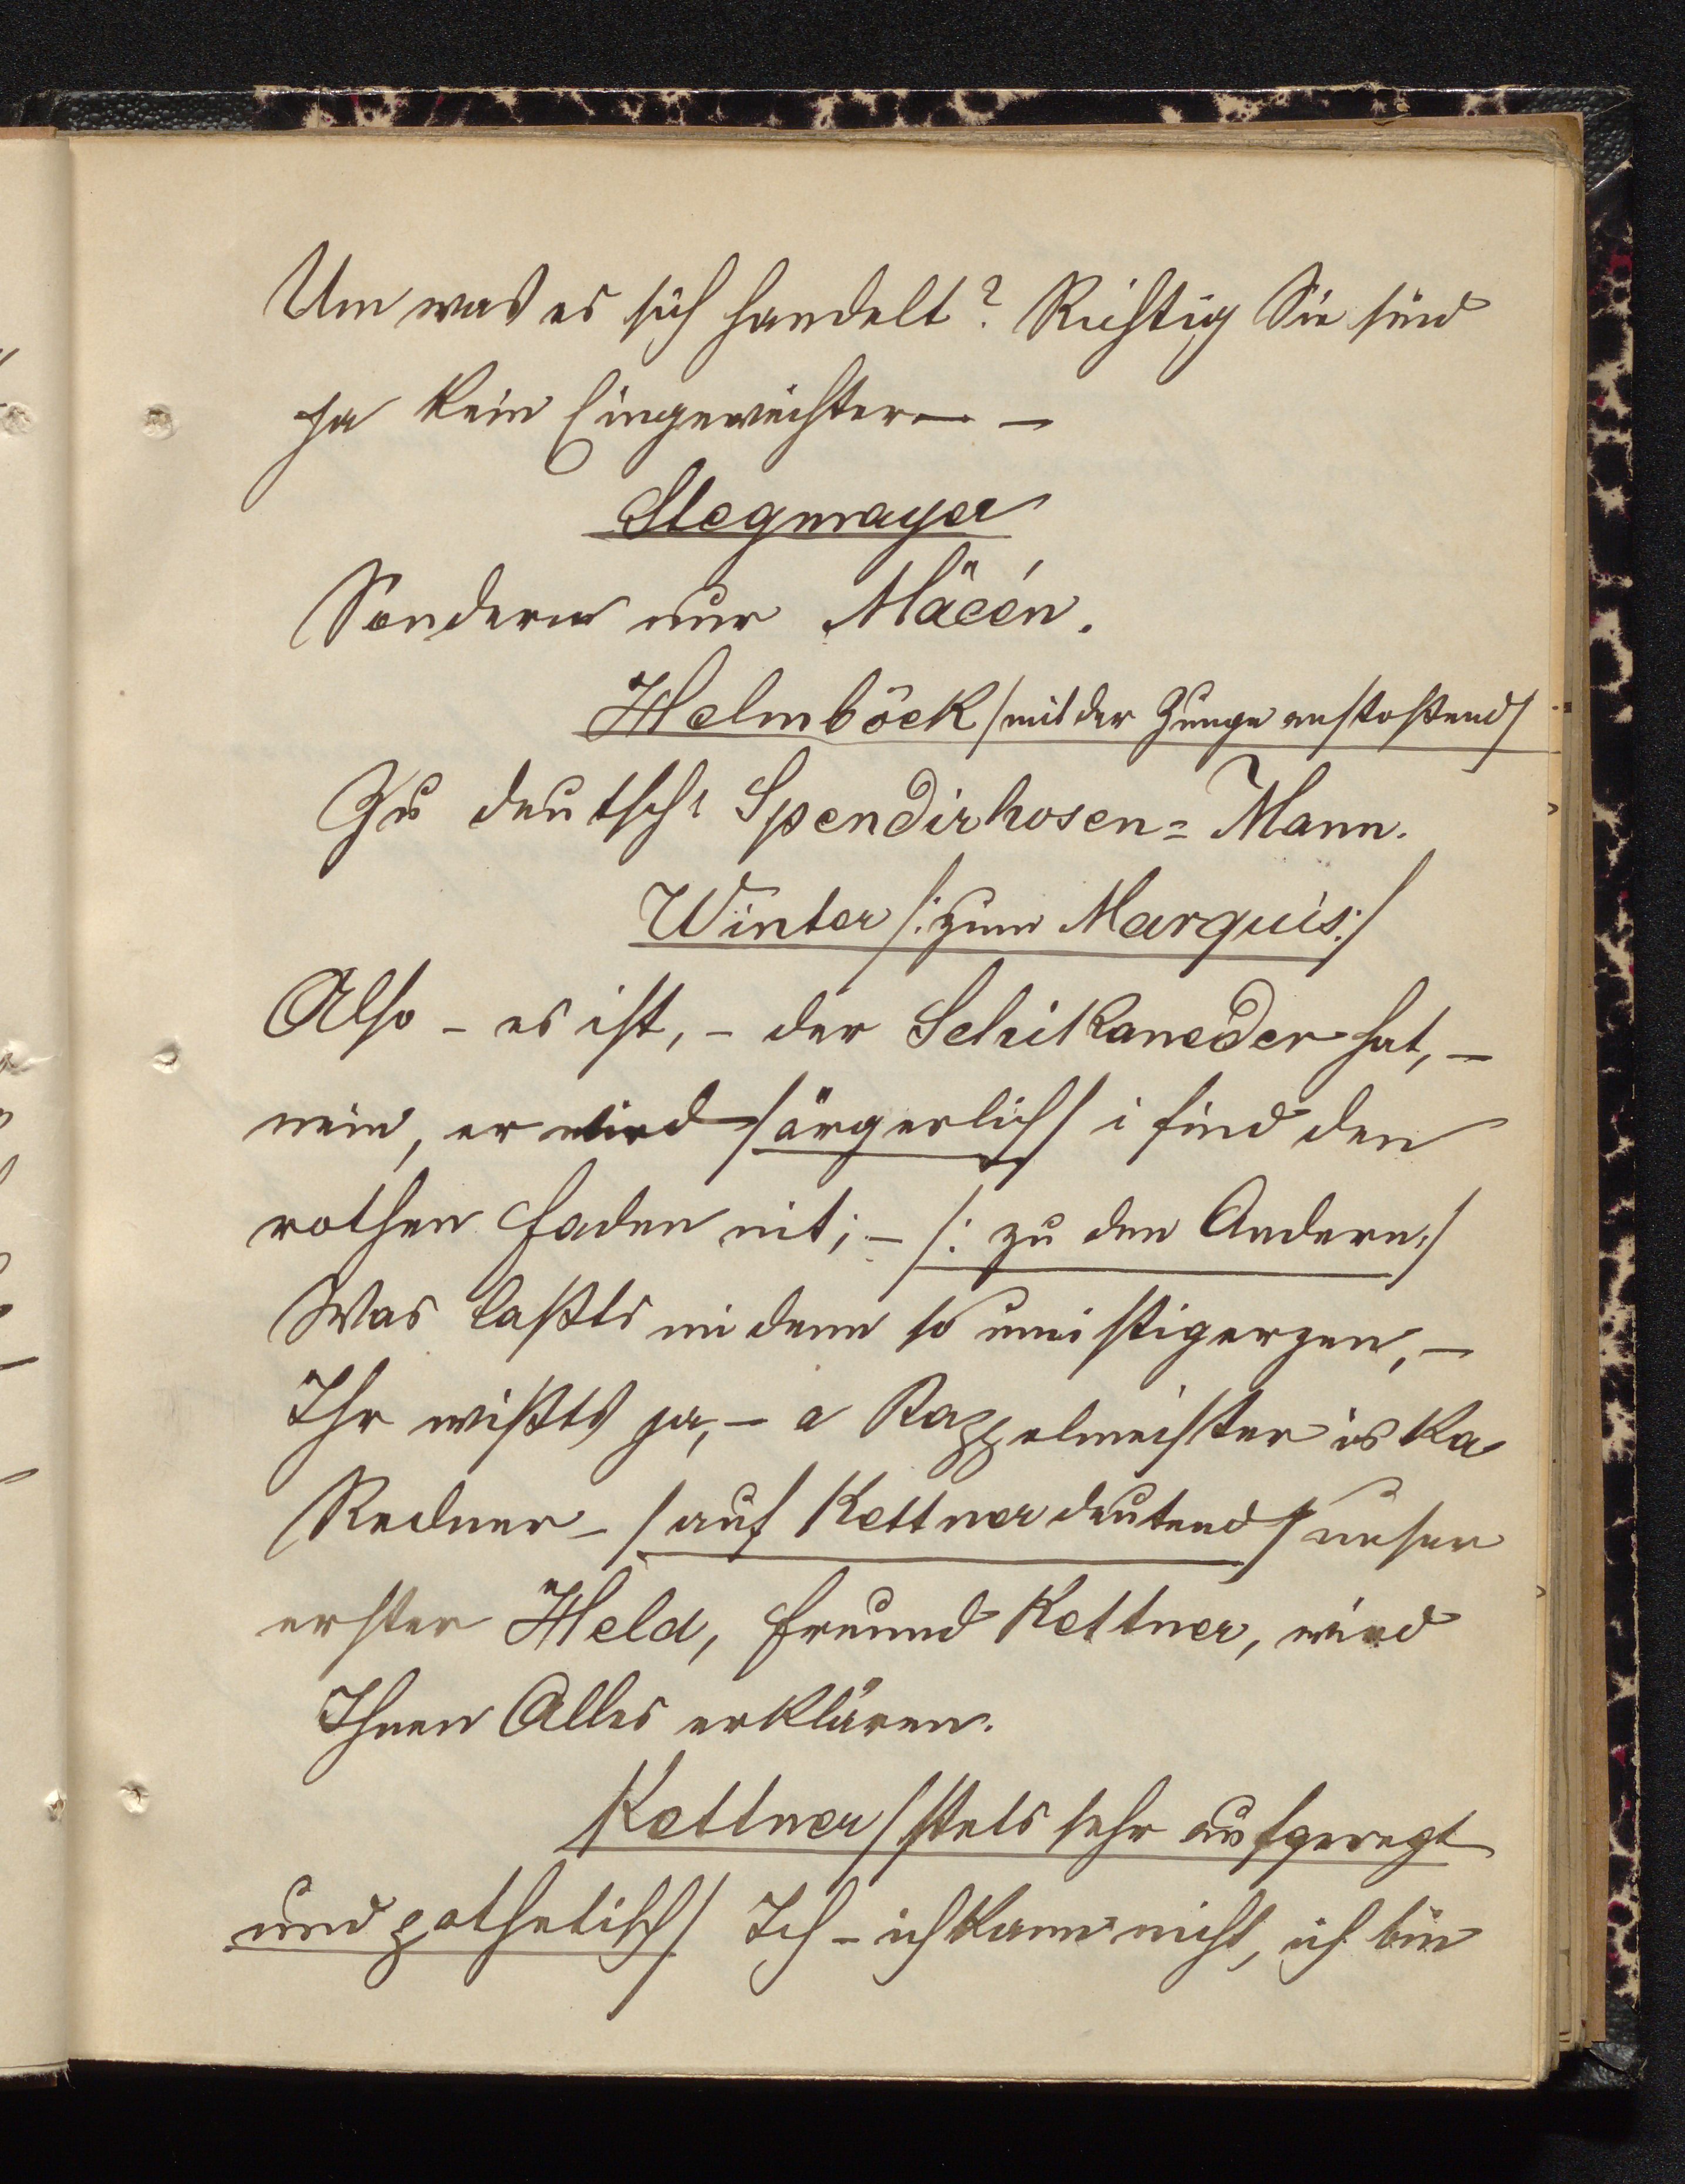 Um was es sich handelt? Richtig Sie sind
ja kein Eingeweihter — –
Stegmayer
Sondern nur Mäcén.
Helmböck /mit der Zunge anstoßend/
Zu deutsch: Spendirhosen=Mann.
Winter /: zum Marquis :/
Also – es ist, – der Schikaneder hat, –
nein, er wird /ärgerlich/ i find den
rothen Faden nit; – /: zu den Andern :/
Was laßts mi denn so umistigerzen, –
Ihr wißts ja, – a Kappelmeister is ka
Redner – /auf Kettner deutend/ unser
erster Held, Freund Kettner, wird
Ihnen Alles erklären.
Kettner /stets sehr aufgeregt
und pathetisch/ Ich – ich kann nicht, ich bin